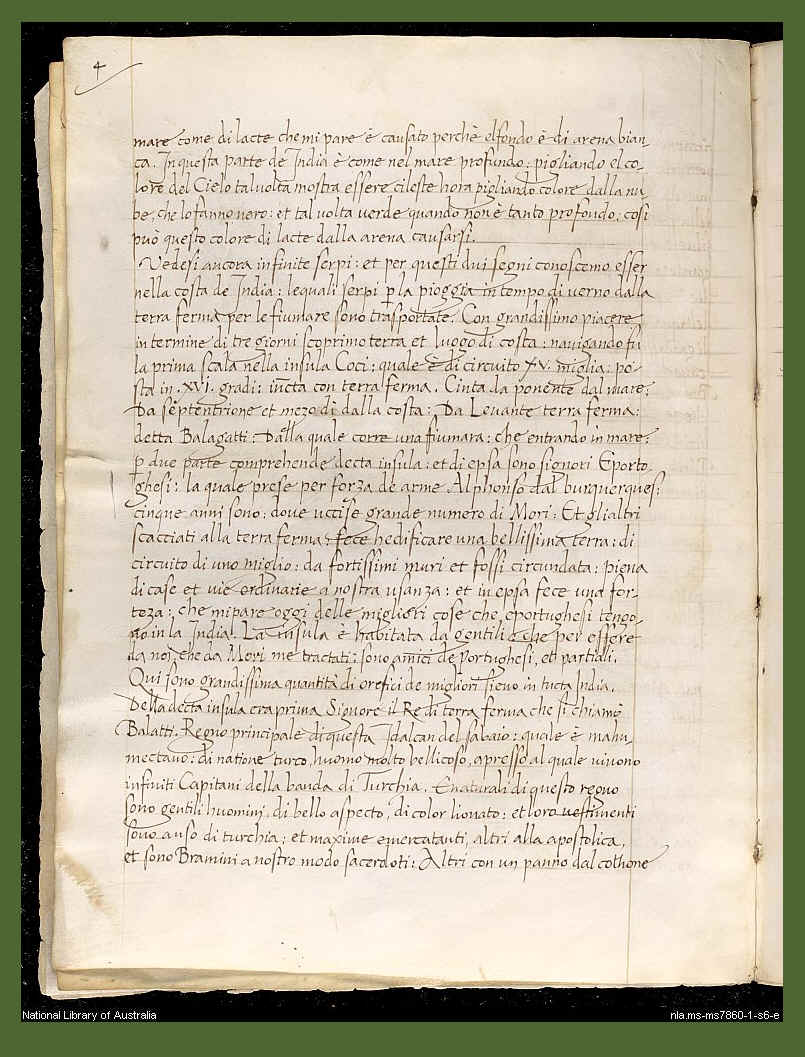 4
mare come di lacte che mi pare è causato perchè el fondo è di arena bian-
ca. In questa parte de India è come nel mare profundo: pigliando el co-
lore del Cielo talvolta mostra essere cileste hora pigliando colore dalla nu
be, che lo fanno nero: et tal volta verde quando non è tanto profondo, cosi
può questo colore di lacte dalla arena causarsi.
Vedesi ancora infinite serpi: et per questi dui segni conoscemo esser
nella costa de India: lequali serpi p la pioggia in tempo di verno dalla
terra ferma per le fiumare sono trasportate. Con grandissimo piacere
in termine di tre giorni scoprimo terra et luogo di costa: navigando fu
la prima scala nella insula Coci: quale è di circuito XV. miglia: po-
sta in .XVI. gradi: iucta con terra ferma. Cinta da ponente dal mare:
Da septentrione et mezo di dalla costa: Da Levante terra ferma:
detta Balagatti: Dalla quale corre una fiumara: che entrando in mare:
p due parte comprehende decta insula: et di epsa sono signori E porto-
ghesi: la quale prese per forza de arme Alphonso dal burquerques:
cinque anni sono: dove uccise grande numero di Mori: Et gli altri
scacciati alla terra ferma: fece hedificare una bellissima terra: di
circuito di uno miglio: da fortissimi muri et fossi circundata: piena
di case et vie ordinarie a nostra usanza: et in epsa fece una for-
teza: che mi pare oggi delle migliori cose che e portughesi tengo-
no in la India. La insula è habitata da gentili che per essere
da noi che da Mori me tractati: sono amici de Portughesi, et partiali.
Qui sono grandissima quantità di orefici de migliori sieno in tucta India.
Della decta insula era prima Signore il Re di terra ferma che si chiamò
Balatti. Regno principale di questa Idalcan del sabaio: quale è mahu-
mectano: di natione turco, huomo molto bellicoso, apresso al quale vivono
infiniti Capitani della banda di Turchia. E naturali di questo regno
sono gentili huomini, di bello aspecto, di color lionato: et loro vestimenti
sono a uso di turchia; et maxime e mercatanti, altri alla apostolica,
et sono Bramini a nostro modo sacerdoti: Altri con un panno dal cothone
National Library of Australia
nla.ms-ms7860-1-s6-e